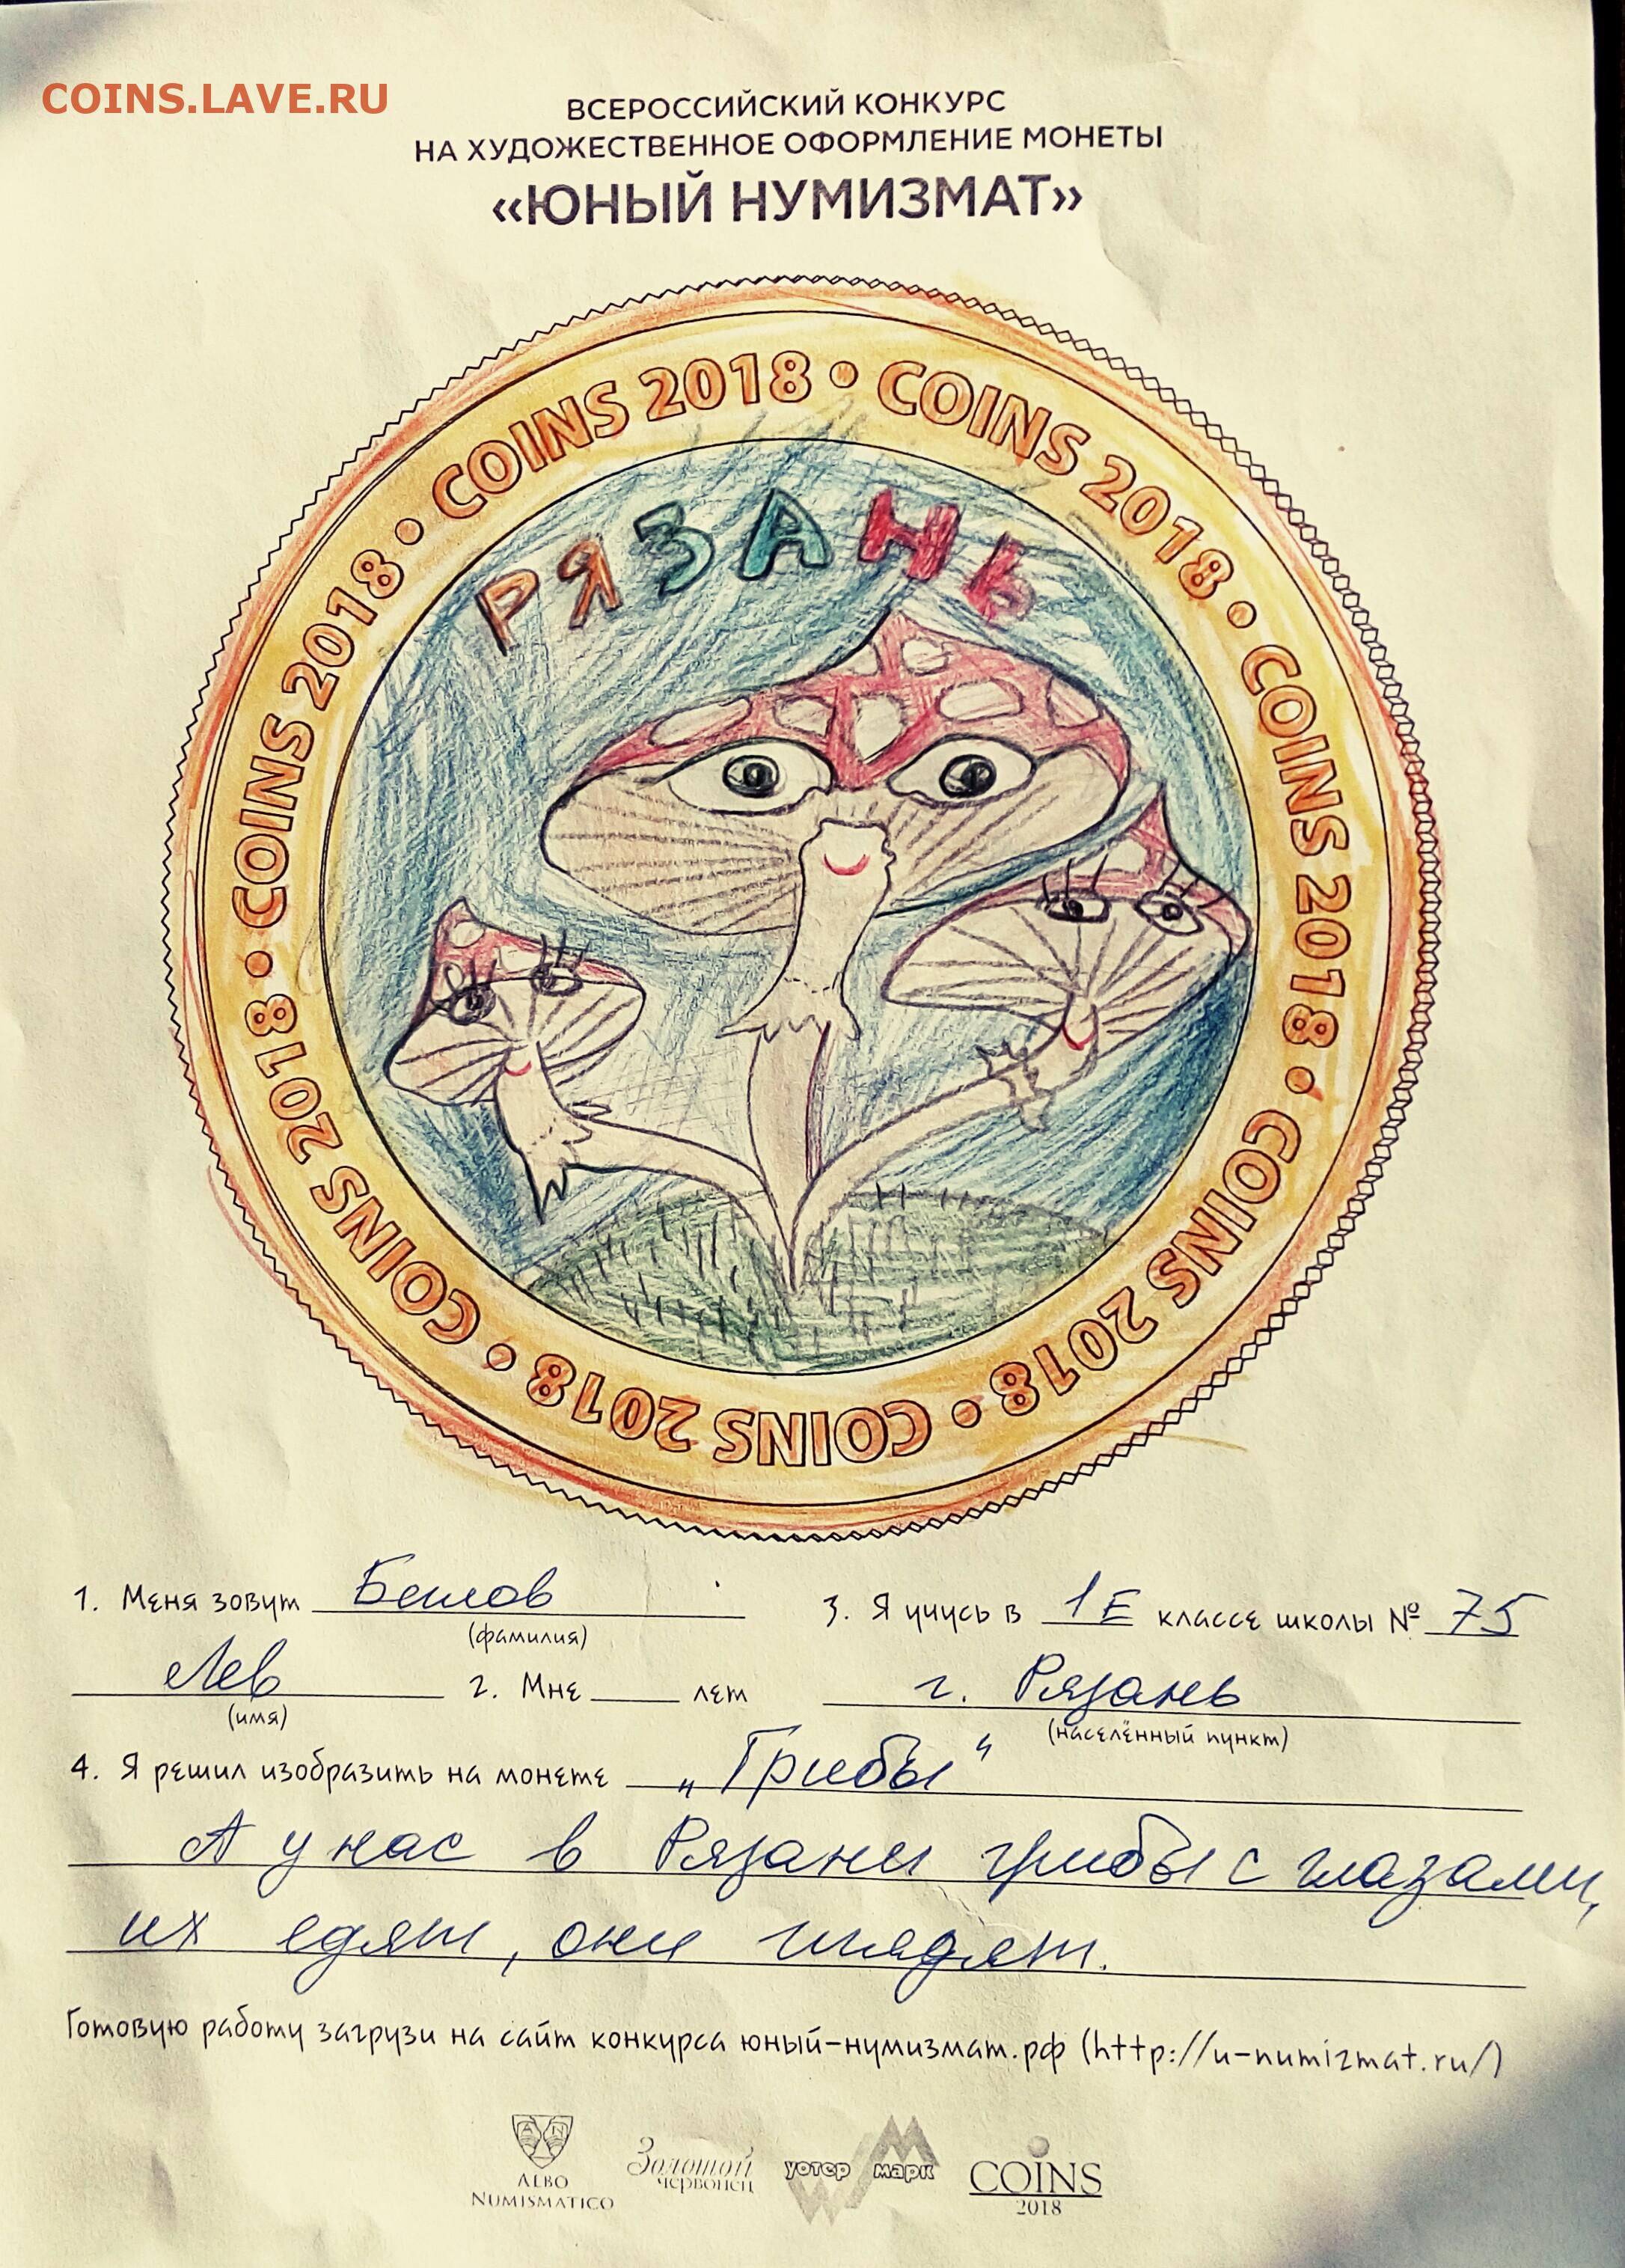 COINS.LAVE.RU
ВСЕРОССИЙСКИЙ КОНКУРС
НА ХУДОЖЕСТВЕННОЕ ОФОРМЛЕНИЕ МОНЕТЫ
«ЮНЫЙ НУМИЗМАТ»
COINS 2018 • COINS 2018 • COINS 2018 • COINS 2018 • COINS 2018 • COINS 2018 • COINS 2018 •
РЯЗАНЬ
1. Меня зовут Белов
(фамилия)
Лев
(имя)
2. Мне ____ лет
3. Я учусь в 1Е классе школы № 75
г. Рязань
(населённый пункт)
4. Я решил изобразить на монете „Грибы“
А у нас в Рязани грибы с глазами,
их едят, они глядят.
Готовую работу загрузи на сайт конкурса юный-нумизмат.рф (http://u-numizmat.ru/)
ALBO
NUMISMATICO
Золотой
червонец
уотер марк
COINS
2018